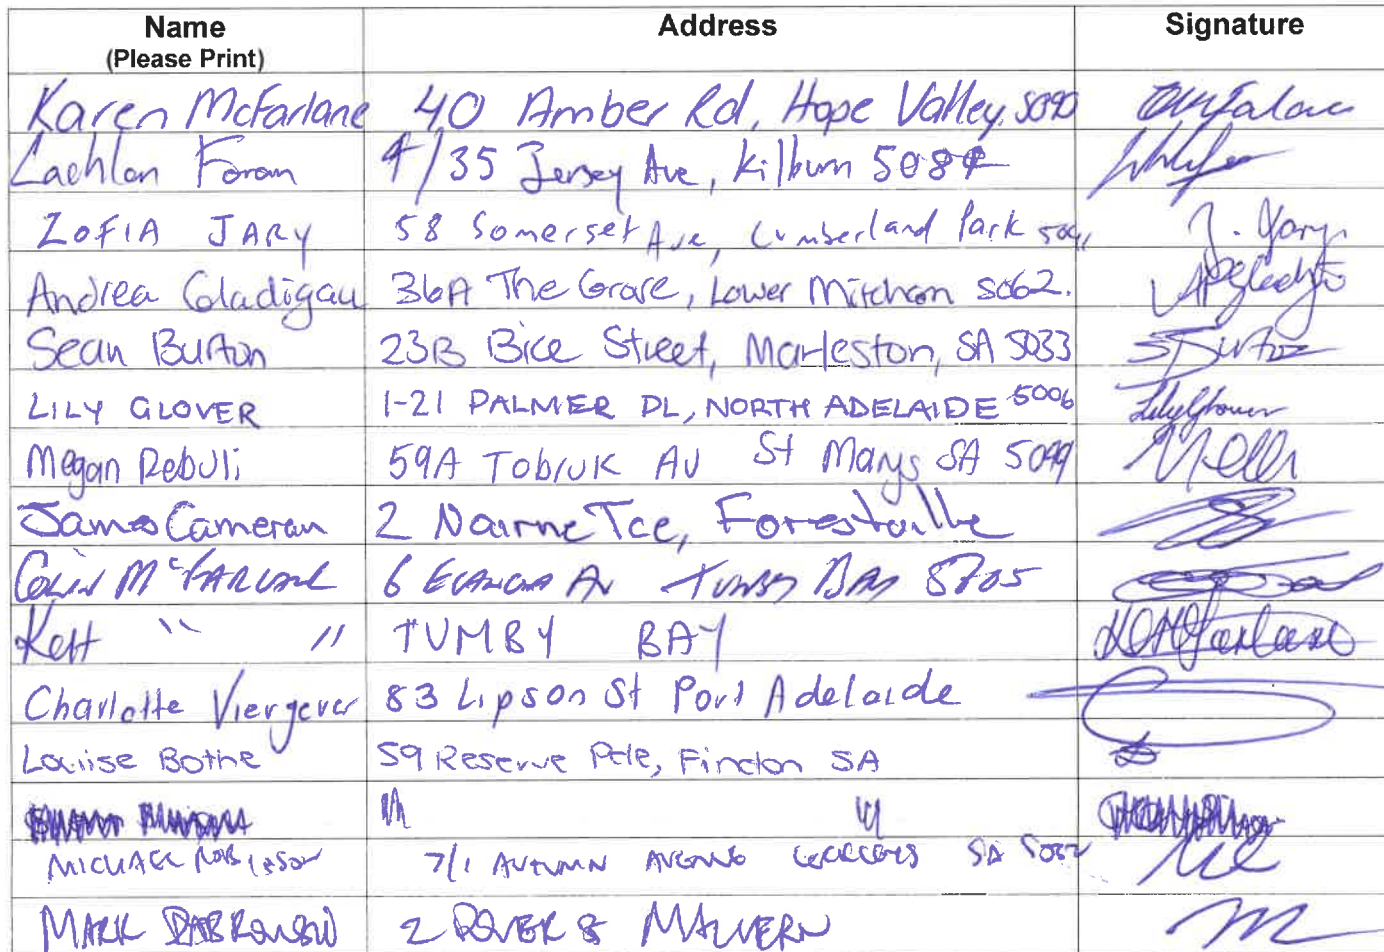 Name Address Signature
(Please Print)
Karen McFarlane 40 Amber Rd, Hope Valley 5090
Lachlan Foran 4/35 Jersey Ave, Kilburn 5084
ZOFIA JARY 58 Somerset Ave, Cumberland Park 5041 Z. Jary
Andrea Gladigau 36A The Grove, Lower Mitcham 5062.
Sean Burton 23B Bice Street, Marleston, SA 5033 SBurton
LILY GLOVER 1-21 PALMER PL, NORTH ADELAIDE 5006 LilyGlover
Megan Rebuli 59A TOBRUK AV St Marys SA 5042
James Cameron 2 Nairne Tce, Forestville
Colin McFARLANE 6 AV TUMBY BAY
" " TUMBY BAY
Charlotte Viergever 83 Lipson St Port Adelaide
Louise Bothe 59 Reserve Pde, Findon SA
MICHAEL ROBINSON 7/1 AUTUMN AVENUE SA
MARK DABROWSKI 2 DOVER S MALVERN